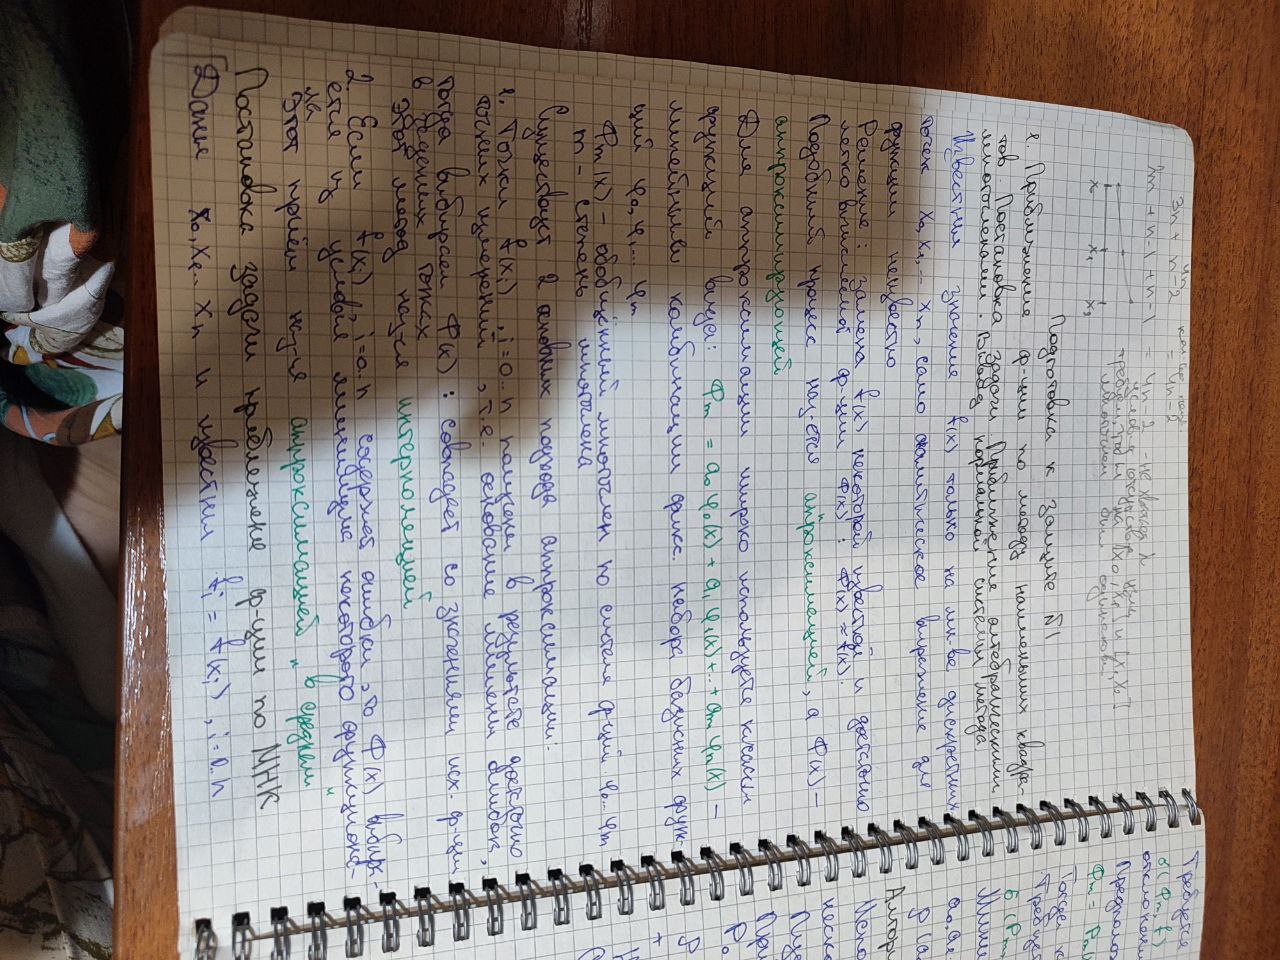 3n + n-2 = 4n-2
2n + n-1 + n-1 = 4n-2 - не хватает 2
услов-я отсутствия узла
требуем, чтобы на [x₀, x₁] и [x₁, x₂]
многочлен был одинаковый
x₀ x₁ x₂
Подготовка к защите №1
1. Приближение ф-ции по методу наименьших квадра-
тов. Постановка задачи. Приближение алгебраическими
многочленами. Вывод нормальной системы метода
Известны значение f(x) только на мн-ве дискретных
точек x₀, x₁, ... xₙ, само аналитическое выражение для
функции неизвестно
Решение: замена f(x) некоторой известной и достаточно
легко вычисляемой ф-ции Φ(x) : Φ(x) ≈ f(x).
Подобный процесс наз-ется апроксимацией, а Φ(x) –
аппроксимирующей
Для аппроксимации широко используется классы
функций вида: Φm = a₀ φ₀(x) + a₁ φ₁(x) + .. + am φm(x) –
линейными комбинации фикс. набора базисных функ-
ций φ₀, φ₁ ... φm
Φm(x) – обобщённый многочлен по системе ф-ций φ₀... φm
m – степень многочлена
Существует 2 основных подхода аппроксимации:
1. Точки f(xᵢ), i=0..n получены в результате достаточно
точных измерений, т.е. основание лишены ошибок,
тогда выбираем Φ(x) : совпадает со значениями исх. ф-ции
в заданных точках
Этот метод наз-ся интерполяцией
2. Если f(xᵢ), i=0..n содержат ошибки, то Φ(x) выбира-
ется из условия минимума некоторого функциона-
ла
Этот приём наз-ся аппроксимацией „в среднем“
Постановка задачи приближение ф-ции по МНК
Даны x₀, x₁... xₙ и известны fᵢ = f(xᵢ), i=0..n
Требуется
отклонени
Предполо
Φm = Pm(
Тогда
Требует
a₀, a₁
Алгор
неско
При
P₀